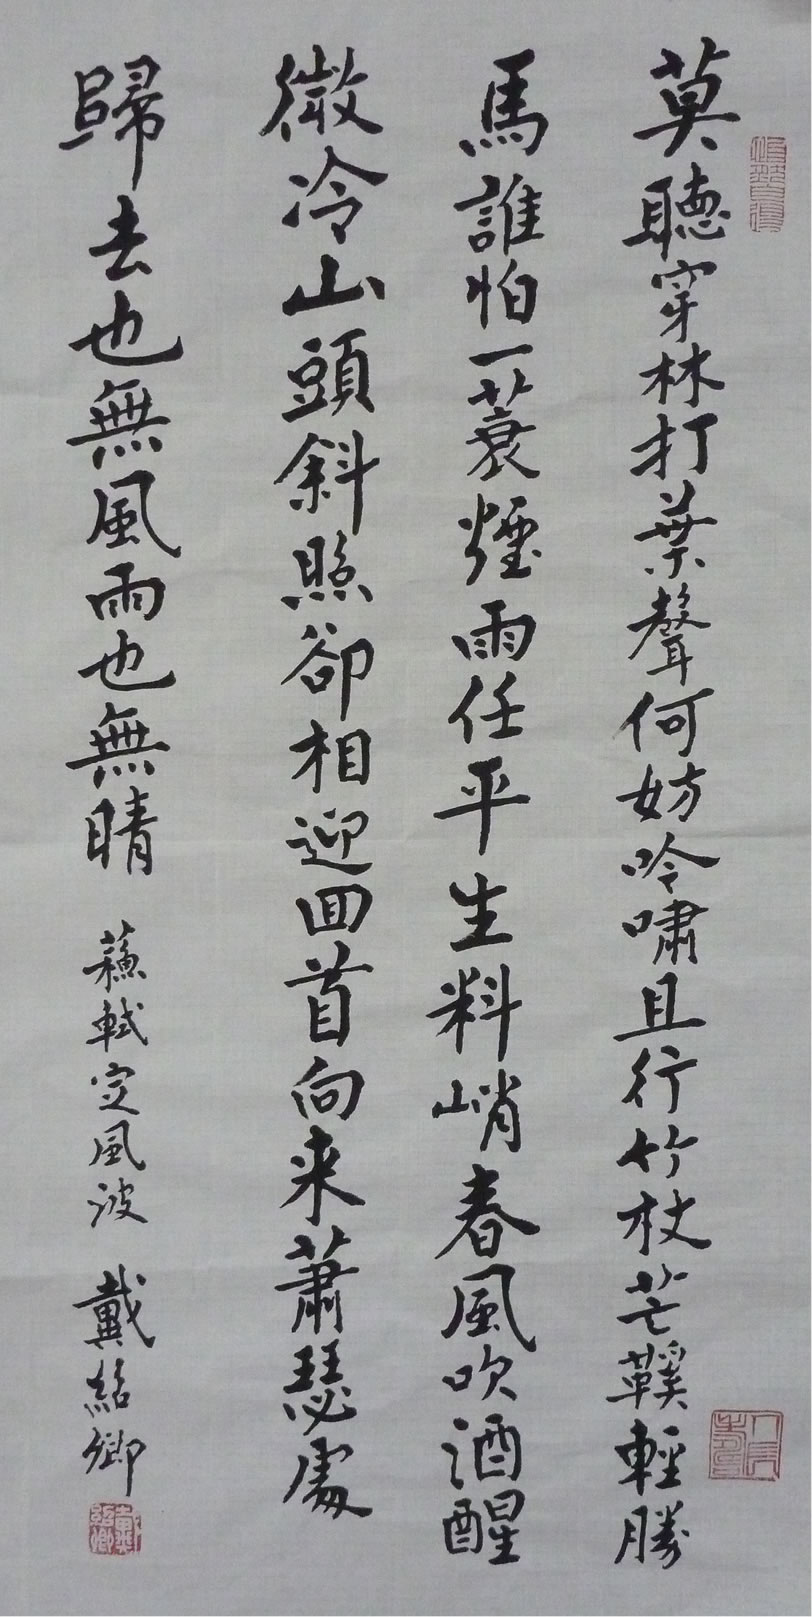 莫聽穿林打葉聲何妨吟嘯且行竹杖芒鞵輕勝
馬誰怕一蓑煙雨任平生料峭春風吹酒醒
微冷山頭斜照卻相迎回首向来蕭瑟處
歸去也無風雨也無晴
蘇軾定風波 戴紹卿
戴紹卿